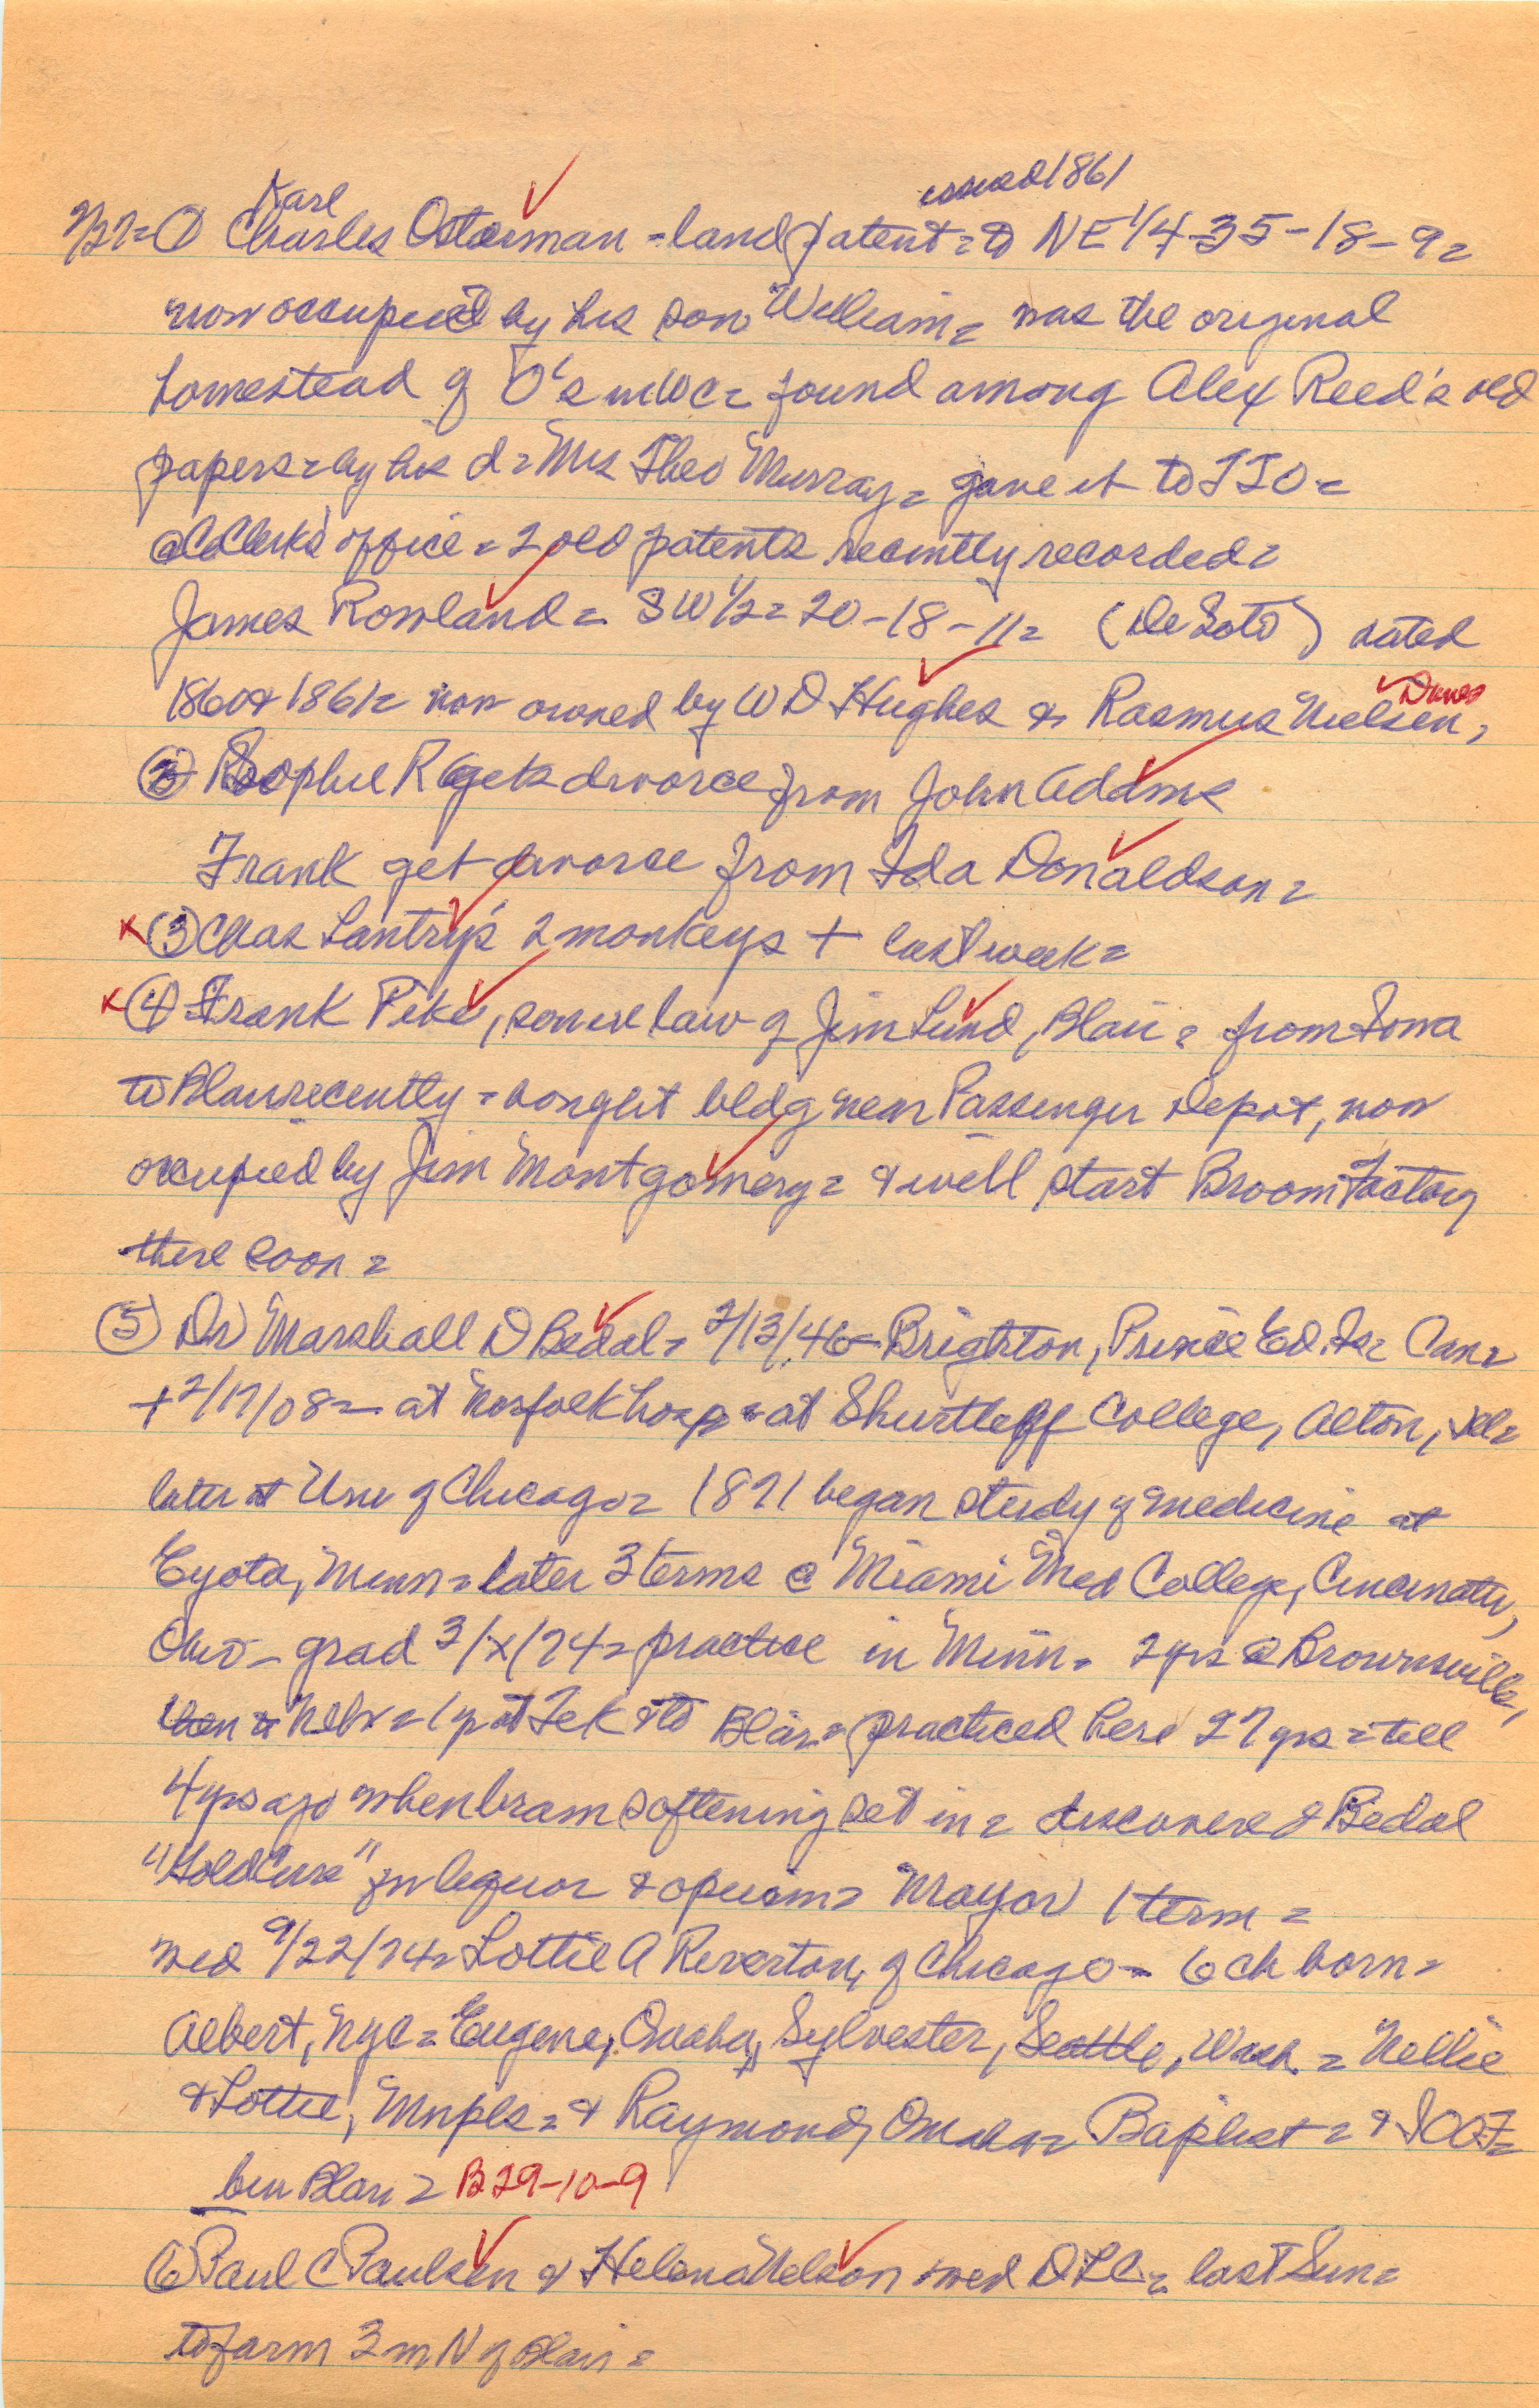 Karl issued 1861
2/27= ① Charles Osterman = land patent = to NE 1/4 35-18-9=
now occupied by his son William = was the original
homestead of O's in WC = found among Alex Reed's old
papers = by his d = Mrs Theo Murray = gave it to TTO =
@ CoClerks' office = 2 old patents recently recorded =
James Rowland = SW 1/2 = 20-18-11 = (De Soto) dated
1860 & 1861 = now owned by W D Hughes & Rasmus Nielsen, Danes
② Sophie R gets divorce from John Addms
Frank get divorce from Ida Donaldson =
x ③ Chas Lantry's 2 monkeys + last week =
x ④ Frank Pike, son in law of Jim Lund, Blair = from Iowa
to Blair recently = bought bldg near Passenger Depot, now
occupied by Jim Montgomery = & will start Broom Factory
there soon =
⑤ Dr Marshall D Bedal = 2/13/46 - Brighton, Prince Ed. Is = Can =
+ 2/17/08 = at Norfolk hosp = at Shurtleff College, Alton, Ill =
later at Uni of Chicago = 1871 began study of medicine at
Eyota, Minn = later 3 terms @ Miami Med College, Cincinati,
Ohio - grad 3/x/74 = practice in Minn = 2 yrs @ Brownsville,
then to Nebr = 1 yr at Tek & to Blair = practiced here 27 yrs = till
4 yrs ago when brain softening set in = discovered Bedal
"Gold Cure" for liquor & opium = Mayor 1 term =
wed 9/22/74 = Lottie A Reverton, of Chicago - 6 ch born =
Albert, NYC = Eugene, Omaha, Sylvester, Seattle, Wash = Nellie
& Lottie, Mnpls = & Raymond, Omaha = Baptist = & IOOF =
bur Blair = B29-10-9
⑥ Paul C Paulsen & Helena Nelson wed DLC = last Sun =
to farm 3 m N of Blair =